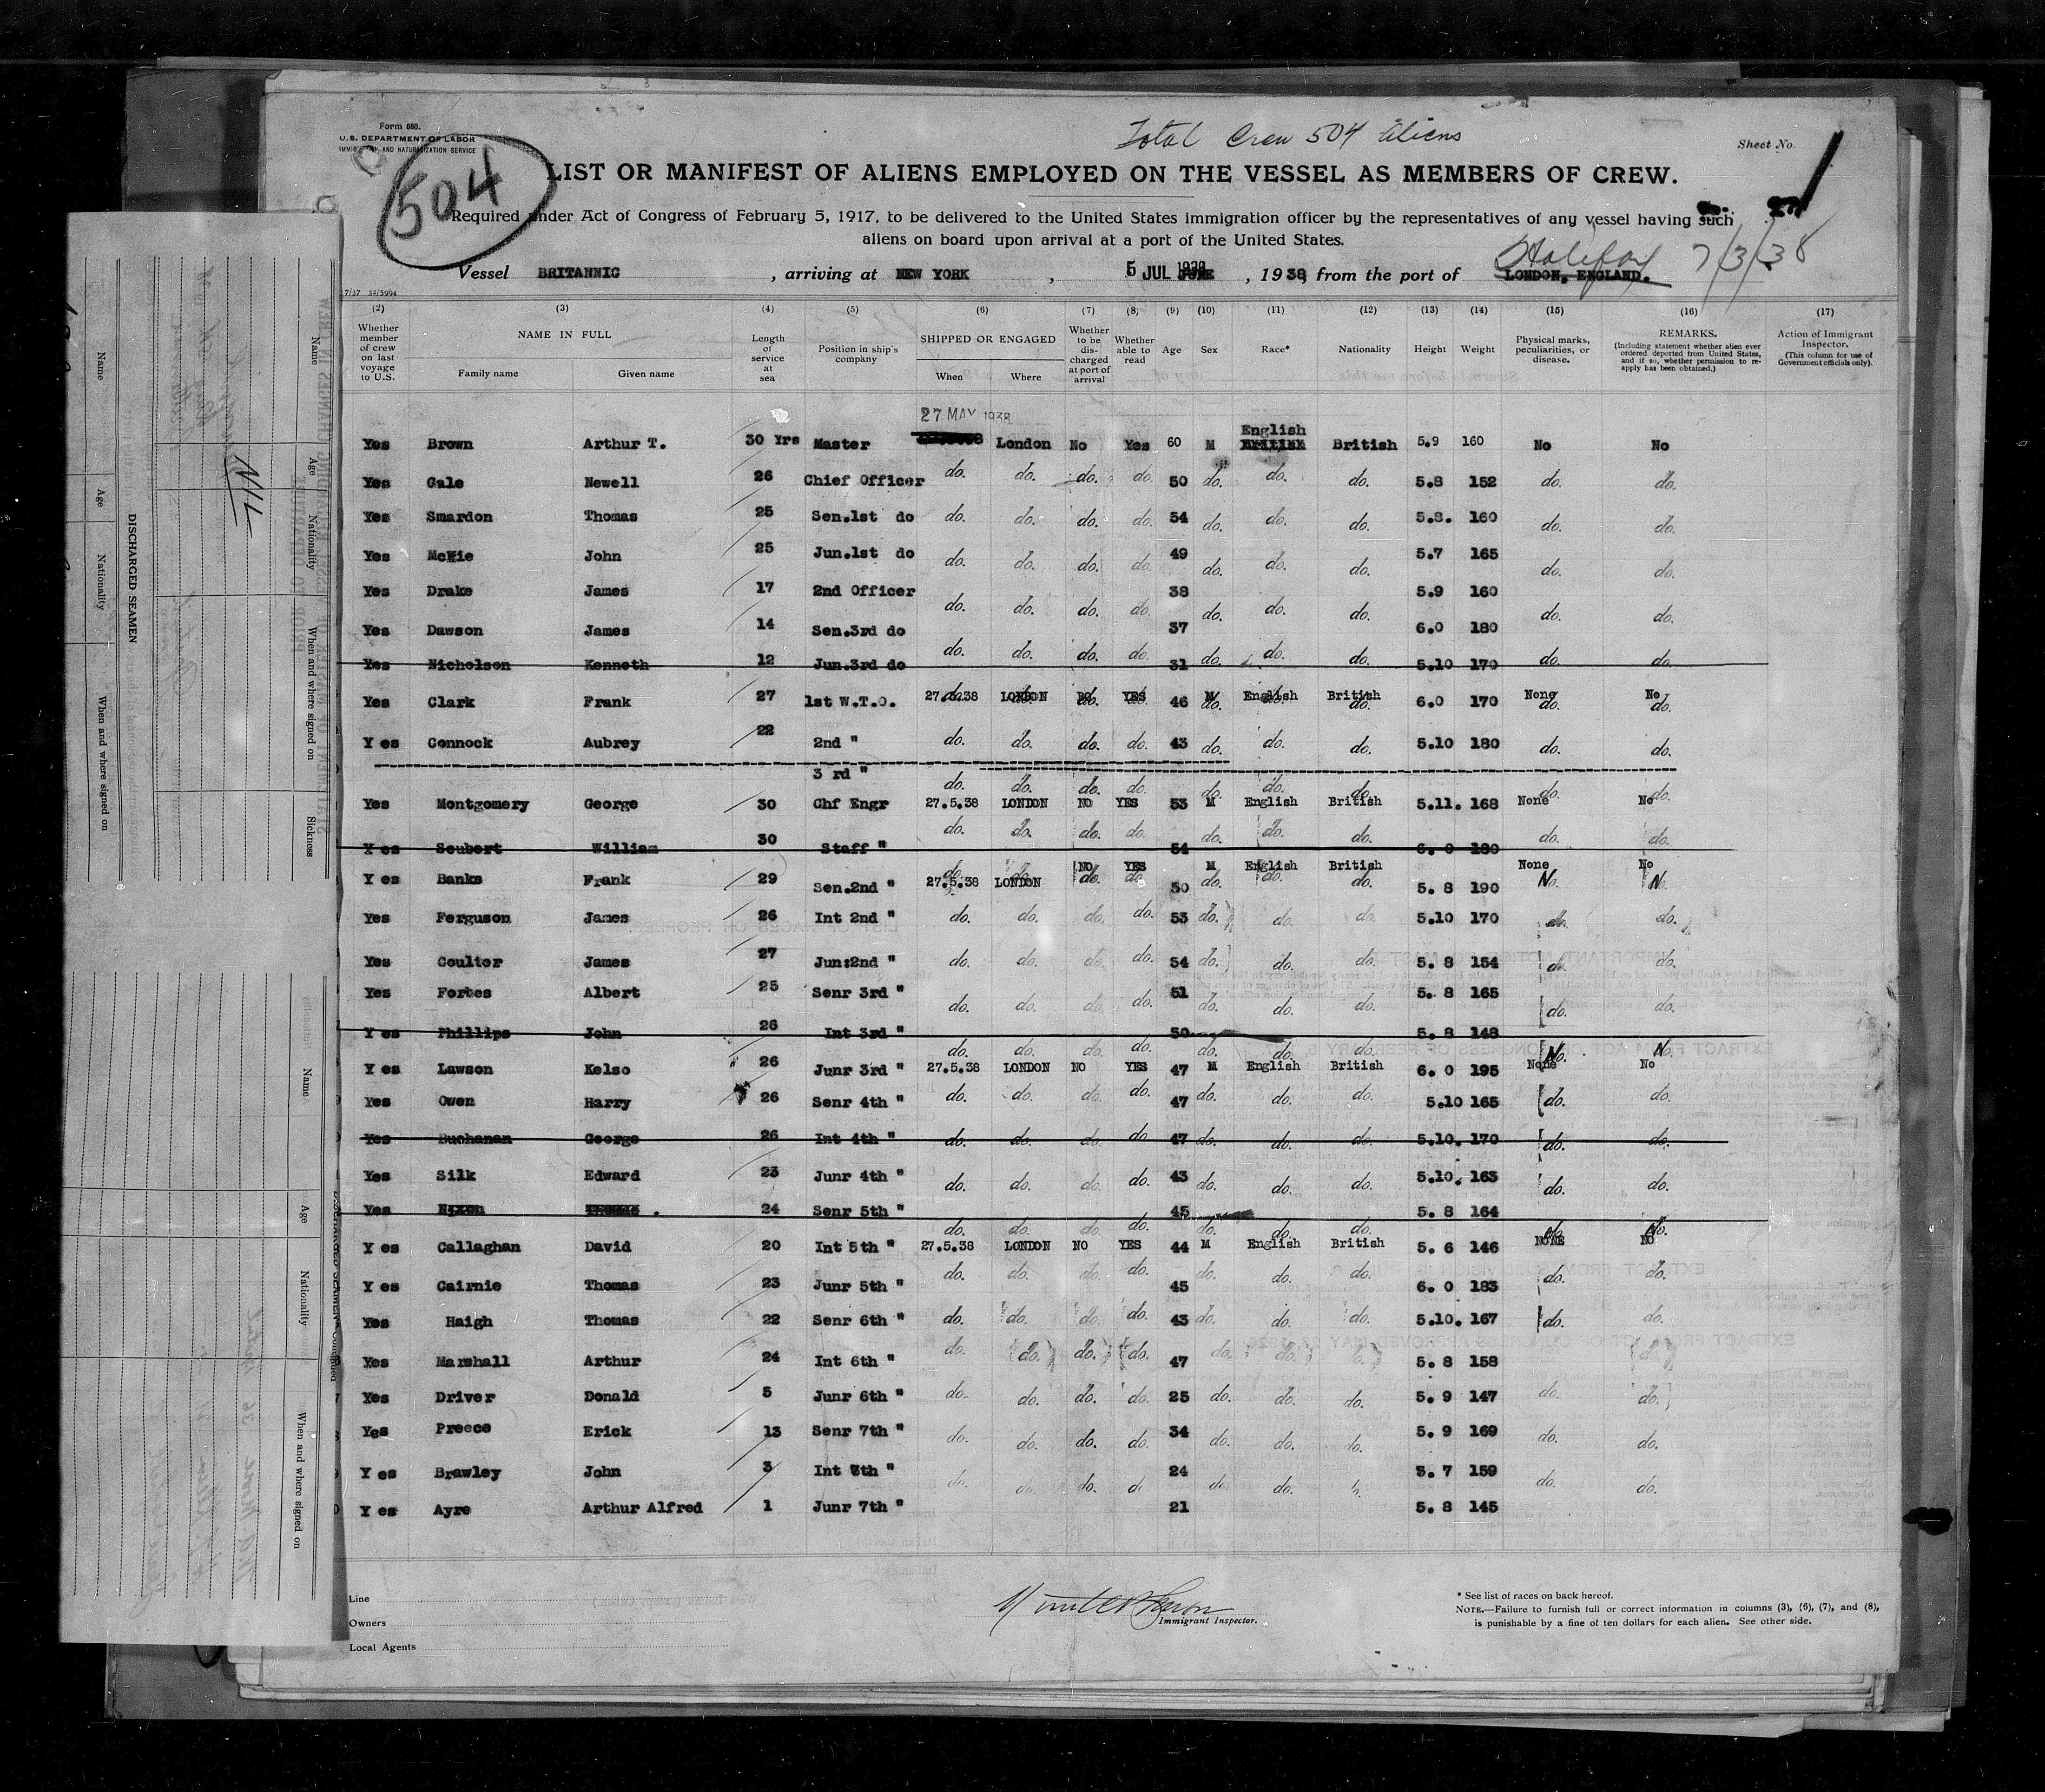 Form 680.
U.S. DEPARTMENT OF LABOR
IMMIGRATION AND NATURALIZATION SERVICE
504
Total Crew 504 aliens
Sheet No. 1
LIST OR MANIFEST OF ALIENS EMPLOYED ON THE VESSEL AS MEMBERS OF CREW.
Required under Act of Congress of February 5, 1917, to be delivered to the United States immigration officer by the representatives of any vessel having such
aliens on board upon arrival at a port of the United States.
Halifax 7/3/38
Vessel BRITANNIC, arriving at NEW YORK, 5 JUL 1938 JUNE, 1938, from the port of LONDON, ENGLAND.
7/37 32/5994
(2) (3) (4) (5) (6) (7) (8) (9) (10) (11) (12) (13) (14) (15) (16) (17)
Whether member of crew on last voyage to U.S. NAME IN FULL Family name Given name Length of service at sea Position in ship's company SHIPPED OR ENGAGED When Where Whether to be discharged at port of arrival Whether able to read Age Sex Race* Nationality Height Weight Physical marks, peculiarities, or disease. REMARKS. (Including statement whether alien ever ordered deported from United States, and if so, whether permission to re-apply has been obtained.) Action of Immigrant Inspector. (This column for use of Government officials only).
27 MAY 1938
English
Yes Brown Arthur T. 30 Yrs Master London No Yes 60 M British British 5.9 160 No No
Yes Gale Newell 26 Chief Officer do. do. do. do. 50 do. do. do. 5.8 152 do. do.
Yes Smardon Thomas 25 Sen.1st do do. do. do. do. 54 do. do. do. 5.8. 160 do. do.
Yes McKie John 25 Jun.1st do do. do. do. do. 49 do. do. do. 5.7 165 do. do.
Yes Drake James 17 2nd Officer do. do. do. do. 38 do. do. do. 5.9 160 do. do.
Yes Dawson James 14 Sen.3rd do do. do. do. do. 37 do. do. do. 6.0 180 do. do.
Yes Nicholson Kenneth 12 Jun.3rd do 31 5.10 170
Yes Clark Frank 27 1st W.T.O. 27.5.38 LONDON NO YES 46 M English British 6.0 170 None No
Yes Connock Aubrey 22 2nd " do. do. do. do. 43 do. do. do. 5.10 180 do. do.
3 rd " do. do. do. do. do. do. do. do. do.
Yes Montgomery George 30 Chf Engr 27.5.38 LONDON NO YES 53 M English British 5.11. 168 None No
Yes Seubert William 30 Staff " do. do. do. do. 54 do. do. do. 6. 0 180 do. do.
Yes Banks Frank 29 Sen.2nd " 27.5.38 LONDON NO YES 50 M English British 5. 8 190 None No
Yes Ferguson James 26 Int 2nd " do. do. do. do. 53 do. do. do. 5.10 170 do. do.
Yes Coulter James 27 Jun:2nd " do. do. do. do. 54 do. do. do. 5. 8 154 do. do.
Yes Forbes Albert 25 Senr 3rd " do. do. do. do. 51 do. do. do. 5. 8 165 do. do.
Yes Phillips John 26 Int 3rd " do. do. do. do. 50 do. do. do. 5. 8 148
Yes Lawson Kelso 26 Junr 3rd " 27.5.38 LONDON NO YES 47 M English British 6. 0 195 None No
Yes Owen Harry 26 Senr 4th " do. do. do. do. 47 do. do. do. 5.10 165 do. do.
Yes Buchanan George 26 Int 4th " do. do. do. do. 47 do. do. do. 5.10. 170 do. do.
Yes Silk Edward 23 Junr 4th " do. do. do. do. 43 do. do. do. 5.10. 163 do. do.
Yes Nixon Thomas . 24 Senr 5th " do. do. do. do. 45 do. do. do. 5. 8 164 do. do.
Yes Callaghan David 20 Int 5th " 27.5.38 LONDON NO YES 44 M English British 5. 6 146 NONE NO
Yes Cairnie Thomas 23 Junr 5th " do. do. do. do. 45 do. do. do. 6. 0 183 do. do.
Yes Haigh Thomas 22 Senr 6th " do. do. do. do. 43 do. do. do. 5.10. 167 do. do.
Yes Marshall Arthur 24 Int 6th " do. do. do. do. 47 do. do. 5. 8 158 do.
Yes Driver Donald 5 Junr 6th " do. do. do. do. 25 do. do. do. 5. 9 147 do. do.
Yes Preece Erick 13 Senr 7th " do. do. do. do. 34 do. do. do. 5. 9 169 do. do.
Yes Brawley John 3 Int 7th " do. do. do. 24 do. do. 5. 7 159 do. do.
Yes Ayre Arthur Alfred 1 Junr 7th " 21 5. 8 145
Line
Owners
Local Agents
Immigrant Inspector.
* See list of races on back hereof.
NOTE.—Failure to furnish full or correct information in columns (3), (6), (7), and (8),
is punishable by a fine of ten dollars for each alien. See other side.
DISCHARGED SEAMEN
Name
Age
Nationality
When and where signed on
Name
Age
Nationality
When and where signed on
Sickness
NIL
Name
Age
Nationality
When and where signed on